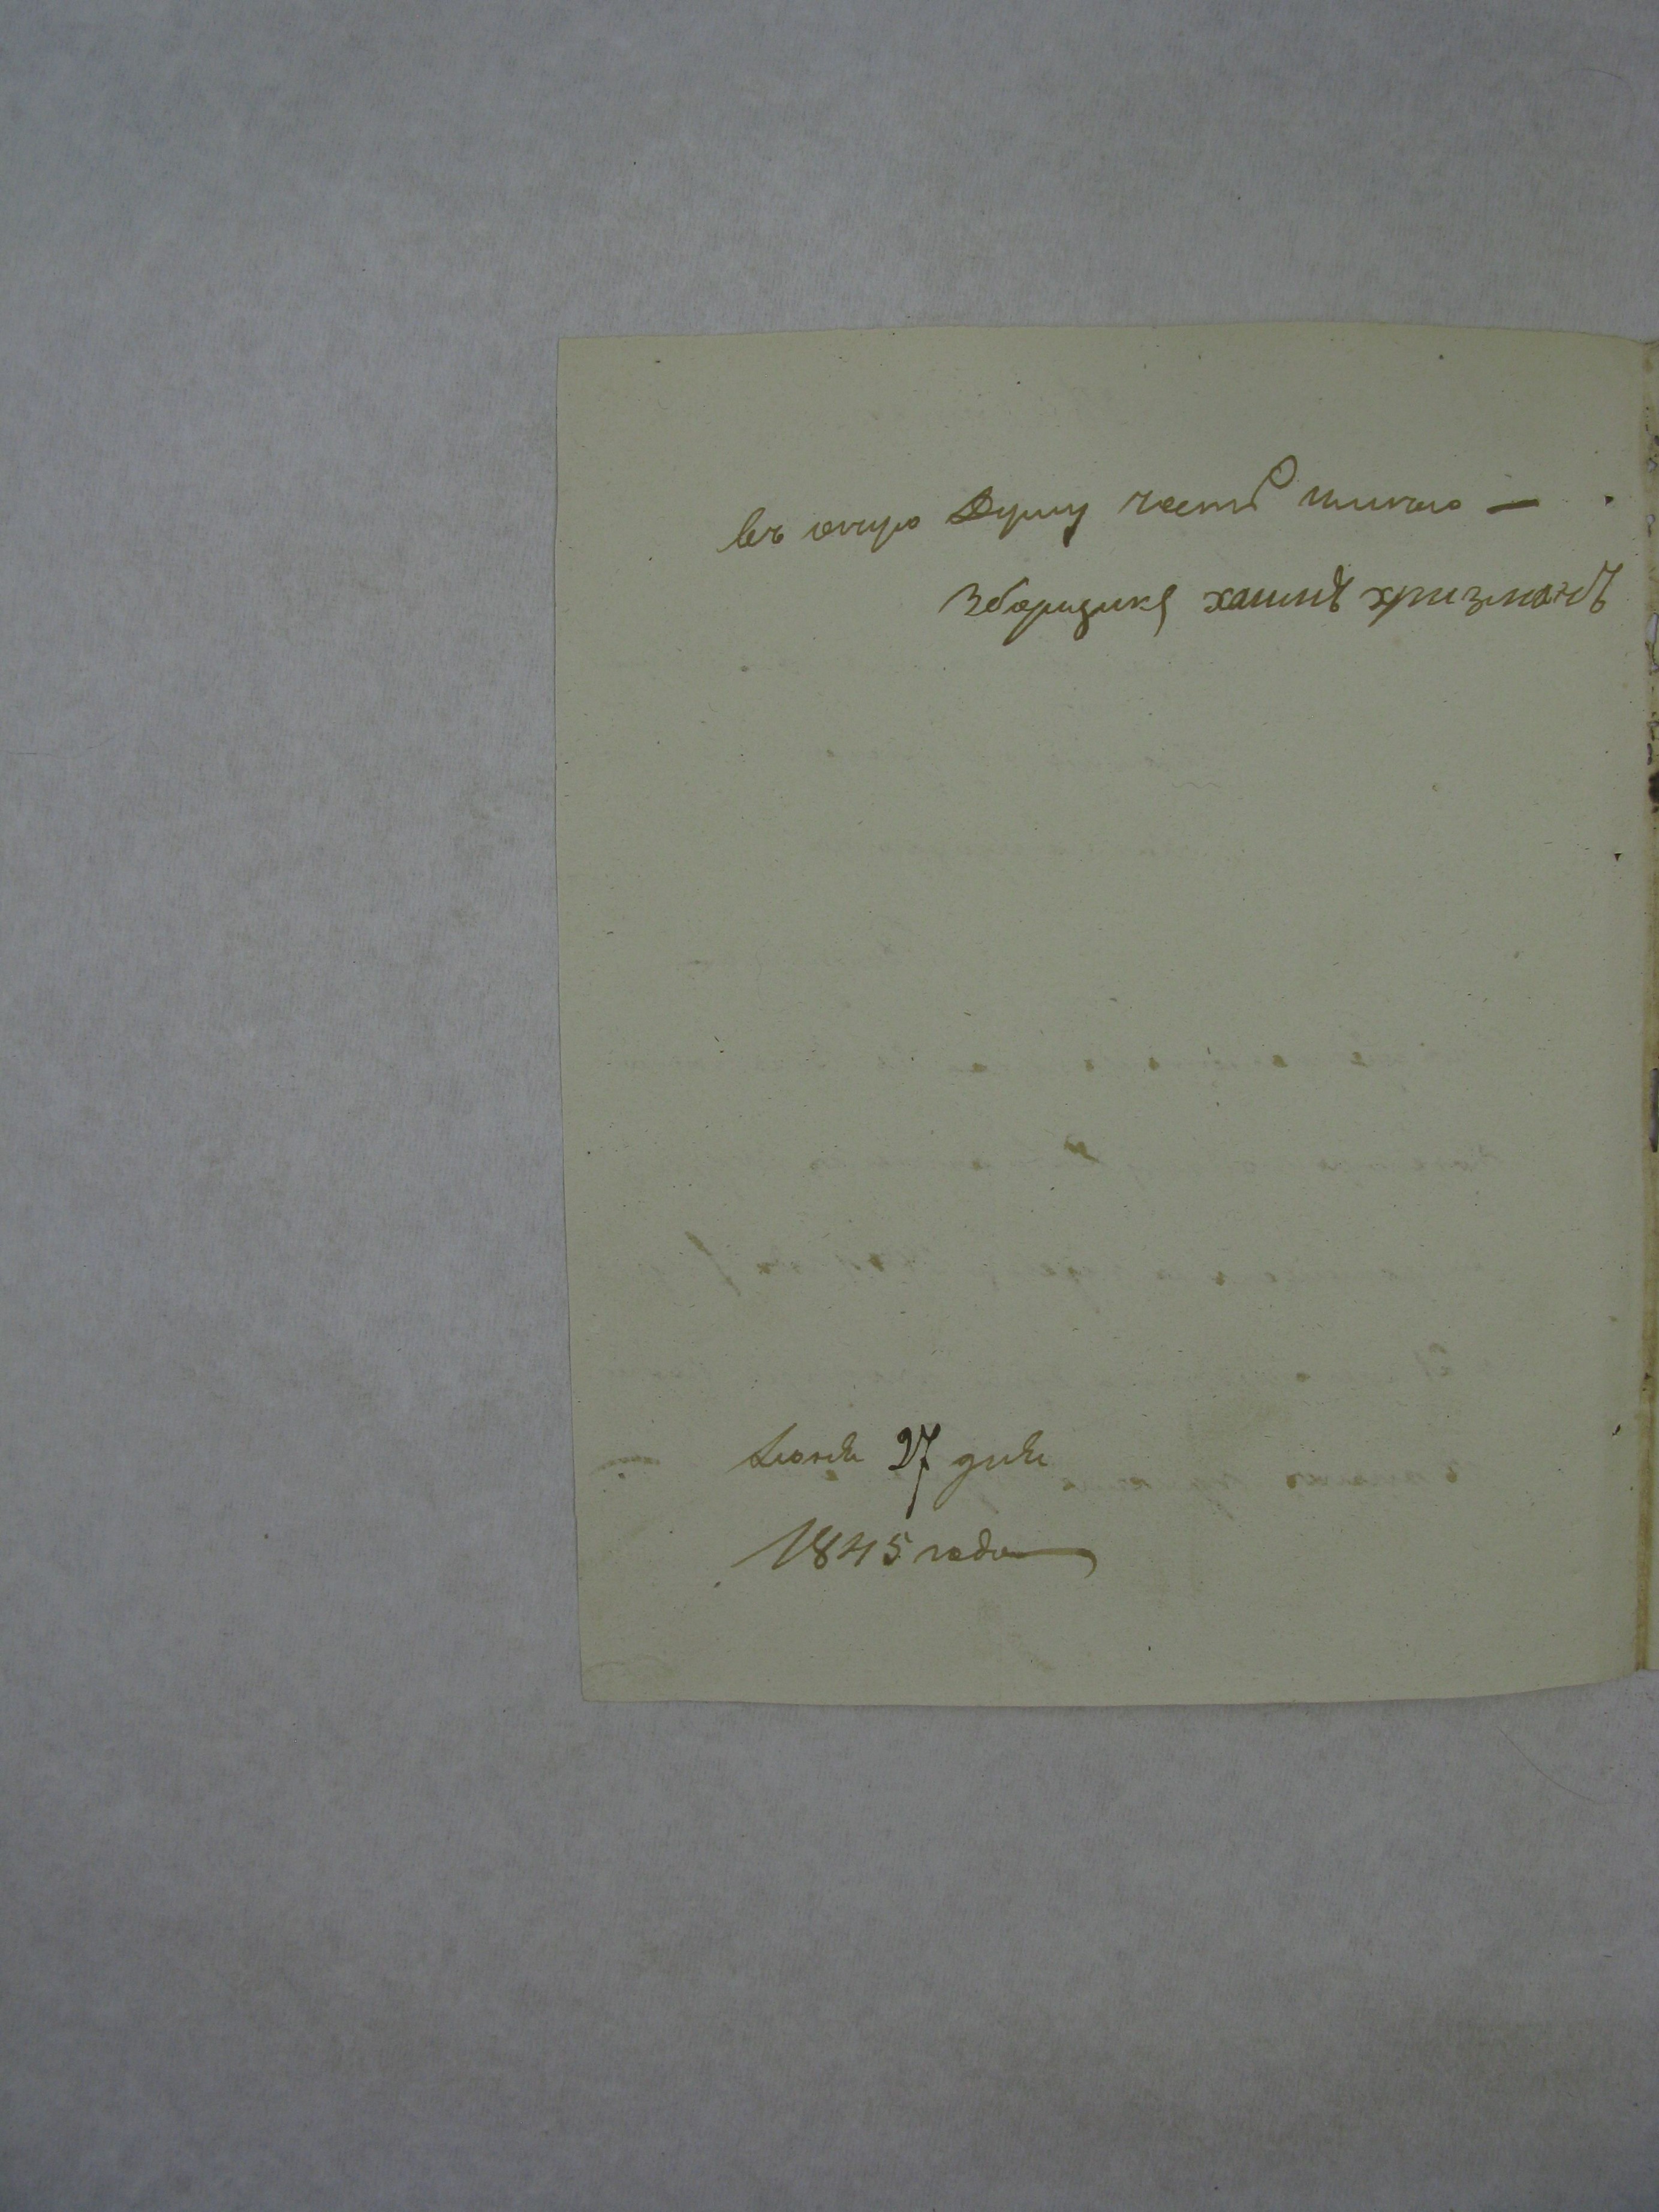 въ оную Думу честь имею —
Зборщикъ хаимъ хризманъ
Июня 27 дня
1845 года